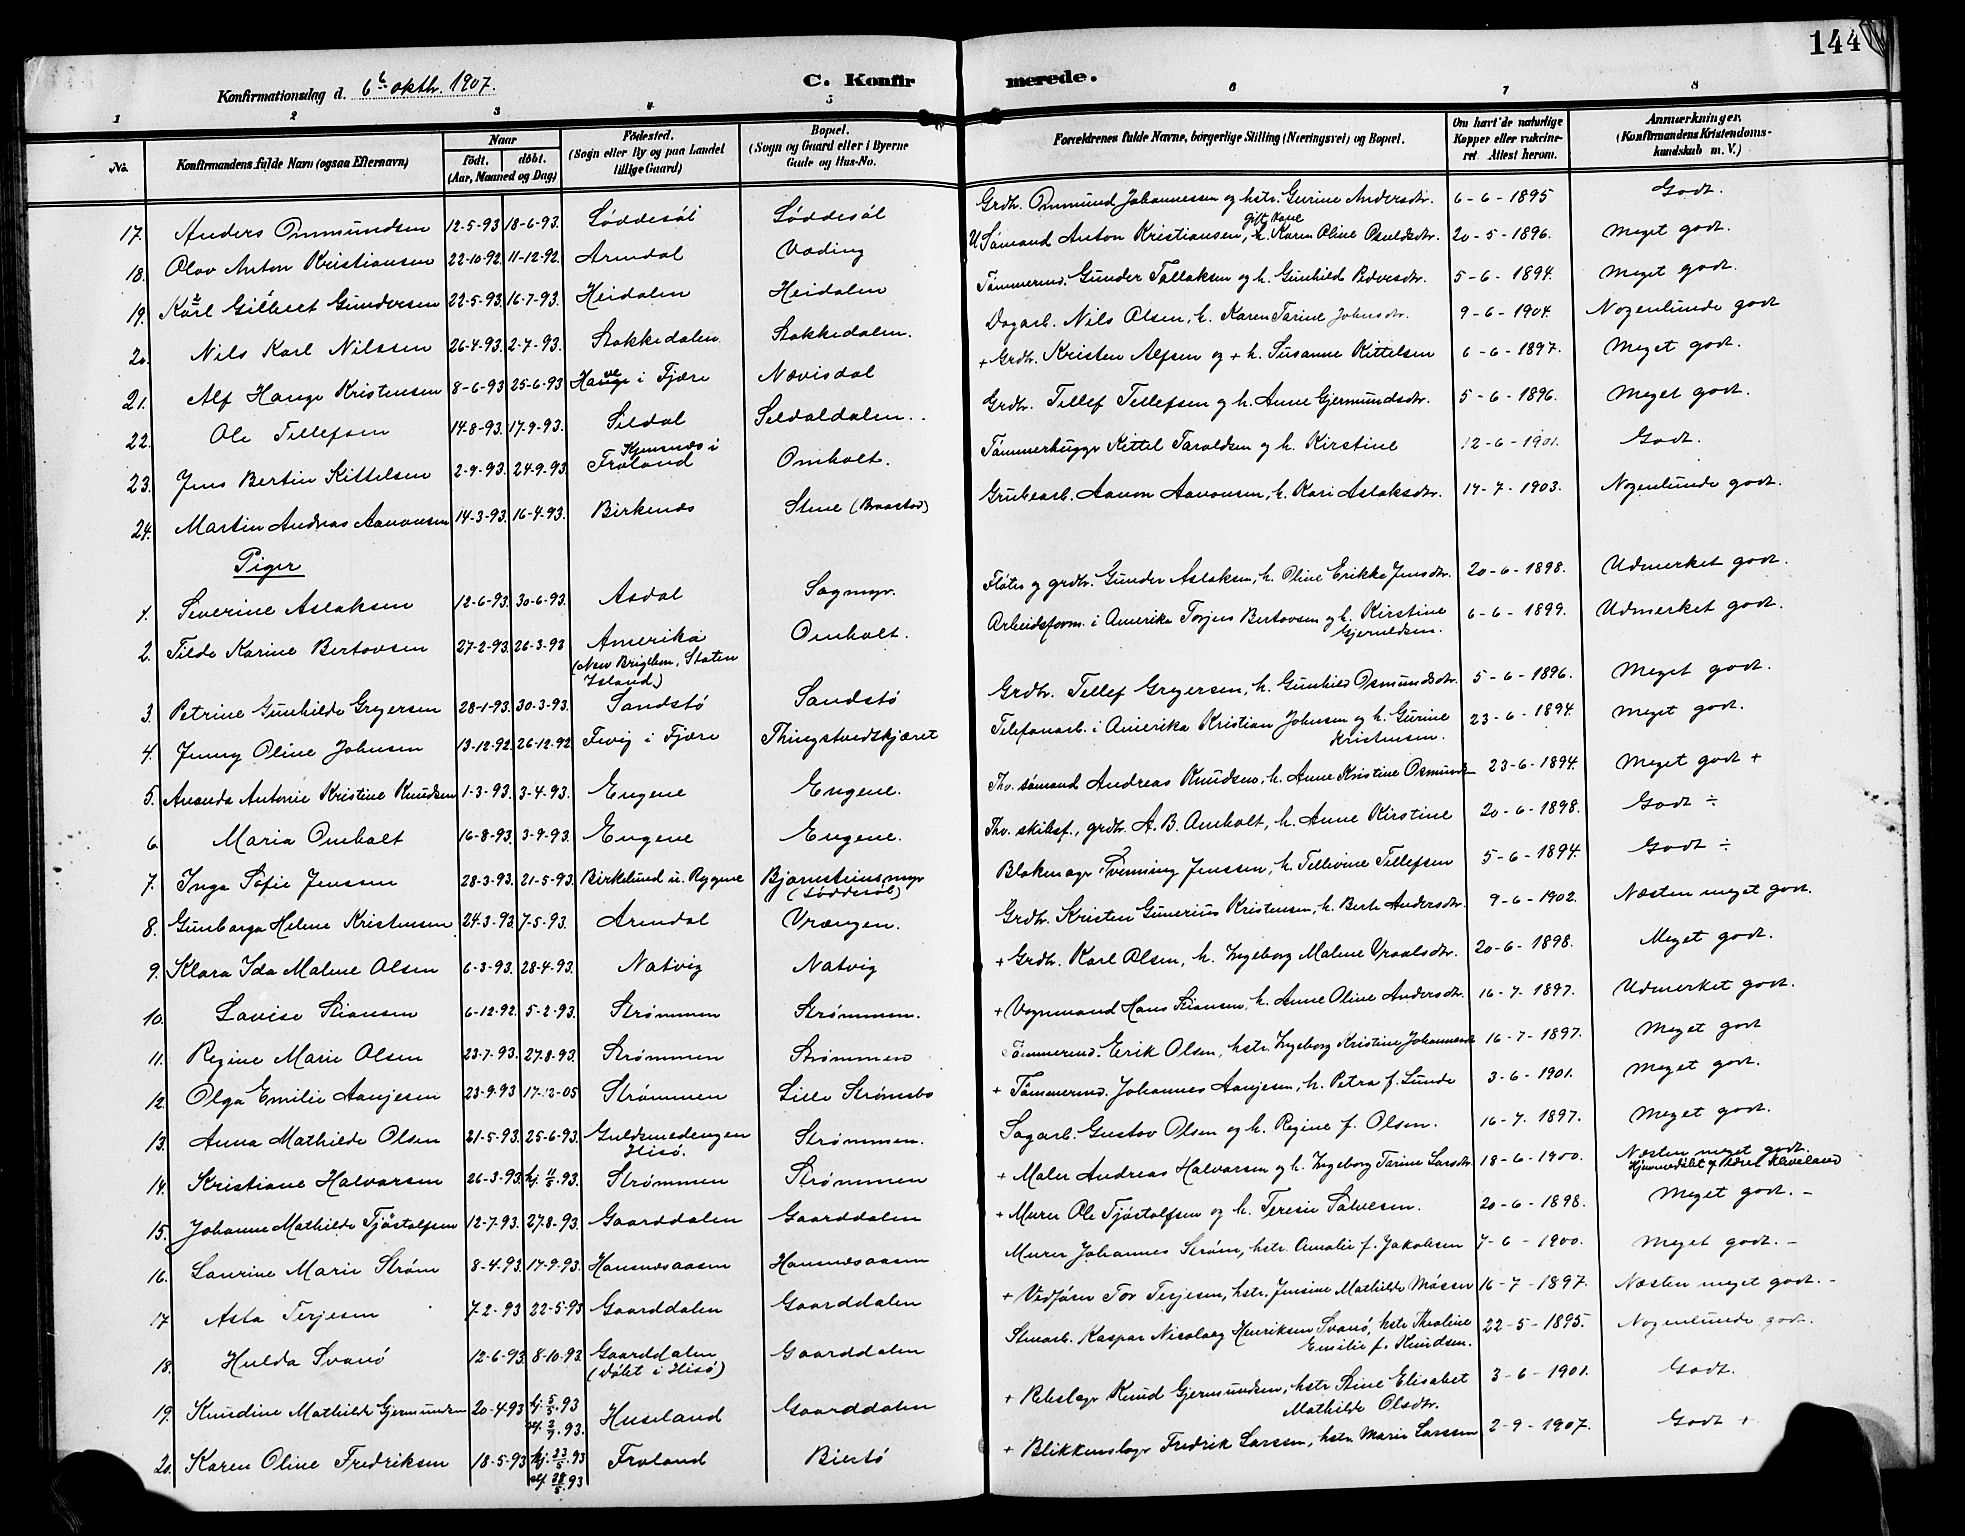 144
Konfirmationsdag d. 6te oktbr. 1907.
C. Konfirmerede.
1 2 3 4 5 6 7 8
No. Konfirmandens fulde Navn (ogsaa Efternavn) Naar født. døbt. (Aar, Maaned og Dag) Fødested. (Sogn eller By og paa Landet tillige Gaard) Bopæl. (Sogn og Gaard eller i Byerne Gade og Hus-No. Forældrenes fulde Navne, borgerlige Stilling (Næringsvei) og Bopæl. Om havt de naturlige Kopper eller vakcineret Attest herom. Anmærkninger. (Konfirmandens Kristendomskundskab m. V.)
17. Anders Ommundsen 12-5-93 18-6-93. Løddesøl Løddesøl Grdbr. Ommund Johannessen og hstr. Gurine Andersdtr. 6-6-1895 Godt.
18. Olav Anton Kristiansen 22-10-92. 11-12-92. Arendal Vading Sømand Anton Kristiansen, Karen Oline 20-5-1896. Meget godt.
19. Karl Gilbert Gundersen 22-5-93. 16-7-93. Heidalen Heidalen Tømmermd. Gunder Tallaksen og h. Gunhild 5-6-1894. Meget godt.
20. Nils Karl Nilssen 26-4-93. 2-7-93. Stokkedalen Stokkedalen. Dagarb. Nils Olsen, h. Karen Tarine Johnsdtr. 9-6-1904. Nogenlunde godt
21. Alf Hauge Kristensen 8-6-93 25-6-93 i Fjære Nævisdal + Grdbr. Kristen Alfsen og + h. Susanne Kittelsen 6-6-1897. Meget godt.
22. Ole Tellefsen 14-8-93. 17-9-93. Seldal Seldaldalen. Grdbr. Tellef Tellefsen og h. Anne Gjermundsdtr. 5-6-1896. Meget godt.
23. Jens Bertin Kittelsen 2-9-93. 24-9-93. i Froland Omholt. Tømmerhugger Kittel Taraldsen og h. Kirstine 12-6-1901. Godt.
24. Martin Andreas Aanonsen 14-3-93. 16-4-93. Birkenæs Stene (Braastad) Grubearb. Aanon Aanonsen, h. Kari Aslaksdtr. 14-7-1903. Nogenlunde godt.
Piger
1. Severine Aslaksen 12-6-93. 30-6-93. Asdal Sagmyr. Fløter og grdbr. Gunder Aslaksen, h. Oline Erikke Jensdtr. 20-6-1898. Udmerket godt.
2. Tilda Karine Bertovsen 27-2-93. 26-3-93 Amerika Omholt. Arbeidsform. i Amerika Torjus Bertovsen og h. Kirstine 6-6-1899. Udmerket godt.
(New Brigthon, Staten Island.) Gjeruldsen.
3. Petrine Gunhilde Gregersen 28-1-93. 30-3-93. Sandstø Sandstø Grdbr. Tellef Gregersen, h. Gunhild Osmundsdtr. 5-6-1896. Meget godt.
4. Jenny Oline Johnsen 13-12-92. 26-12-92 Fevig i Fjære Thingstvedtkjæret Telefonarb. i Amerika Kristian Johnsen og h. Gurine 23-6-1894. Meget godt.
Kristensen.
5. Amanda Antonie Kristine Knudsen 1-3-93. 3-4-93. Engene Engene. Fhv. sømand Andreas Knudsen, h. Anne Kristine Osmunds 23-6-1894. Meget godt +
6. Maria Omholt 16-8-93. 3-9-93. Engene Engene. Fhv. skibsf., grdbr. A. B. Omholt, h. Anne Kirstine 20-6-1898. Godt ÷
7. Inga Sofie Jenssen 28-3-93. 21-5-93. Birkelund u. Rygene Bjørnsteinsmyr Blokmager Svenning Jenssen, h. Tellevine Tellefsen 5-6-1894. Godt ÷
(Løddesøl)
8. Gunborga Helene Kristensen 24-3-93. 7-5-93. Arendal Vrængen. Grdbr. Kristen Gunerius Kristensen, h. Berte Andersdtr. 9-6-1902. Næsten meget godt.
9. Klara Ida Malene Olsen 6-3-93. 28-4-93. Natvig Natvig + Grdbr. Karl Olsen, h. Ingeborg Malene 20-6-1898. Meget godt.
10. Lovise Stiansen 6-12-92. 5-2-93. Strømmen Strømmen. + Vognmand Hans Stiansen, h. Anne Oline Andersdtr. 16-7-1897. Udmerket godt.
11. Regine Marie Olsen 23-7-93. 27-8-93. Strømmen Strømmen Tømmermd. Erik Olsen, hstr. Ingeborg Kristine 16-7-1897. Meget godt
12. Olga Emilie Aanjesen 23-9-93 17-12-05 Strømmen Lille Strømsbo + Tømmermd. Johannes Aanjesen, h. Petra f. Lunde 3-6-1901. Meget godt.
13. Anna Mathilde Olsen 21-5-93. 25-6-93. Guldsmedengen Strømmen. Sagarb. Gustav Olsen og h. Regine f. Olsen. 16-7-1897. Meget godt.
Hisø.
14. Kristiane Halvorsen 26-3-93. hj. 11/5 93. Strømmen Strømmen + Maler Andreas Halvorsen og h. Ingeborg Tarine Larsdtr. 18-6-1900. Næsten meget godt.
Hjemmedøbt af
15. Johanne Mathilde Tjøstolfsen 12-7-93. 27-8-93. Gaarddalen Gaarddalen + Murer Ole Tjøstolfsen og h. Teresie Salvesen. 20-6-1898. Meget godt. -
16. Laurine Marie Strøm 8-4-93. 17-9-93. Hansnesaasen Hansnesaasen Murer Johannes Strøm, hstr. Amalie f. Jakobsen 7-6-1900. Meget godt. -
17 Asta Terjesen 7-2-93 22-5-93 Gaarddalen Gaarddalen + Vedfører Tov Terjesen, hstr. Jensine Mathilde 16-7-1897. Næsten meget godt. -
18. Hulda Svanø 12-6-93. 8-10-93. Gaarddalen Gaarddalen Stenarb. Kaspar Nicolay Henriksen Svanø, hstr. Theoline 22-5-1895. Nogenlunde godt.
(døbt i Hisø) Emilie f. Knudsen.
19. Knudine Mathilde Gjermundsen 20-4-93 hj. 5/5 93 Huseland Gaarddalen + Rebslager Knud Gjermundsen, hstr. Stine Elisabet 3-6-1901. Godt.
93. Mathilde Olsdtr.
20. Karen Oline Fredriksen 18-5-93 hj. 23/5 93 Froland Biestø + Blikkenslager Fredrik Larssen, hstr. Marie Larssen 2-9-1907. Godt +
28/5 93